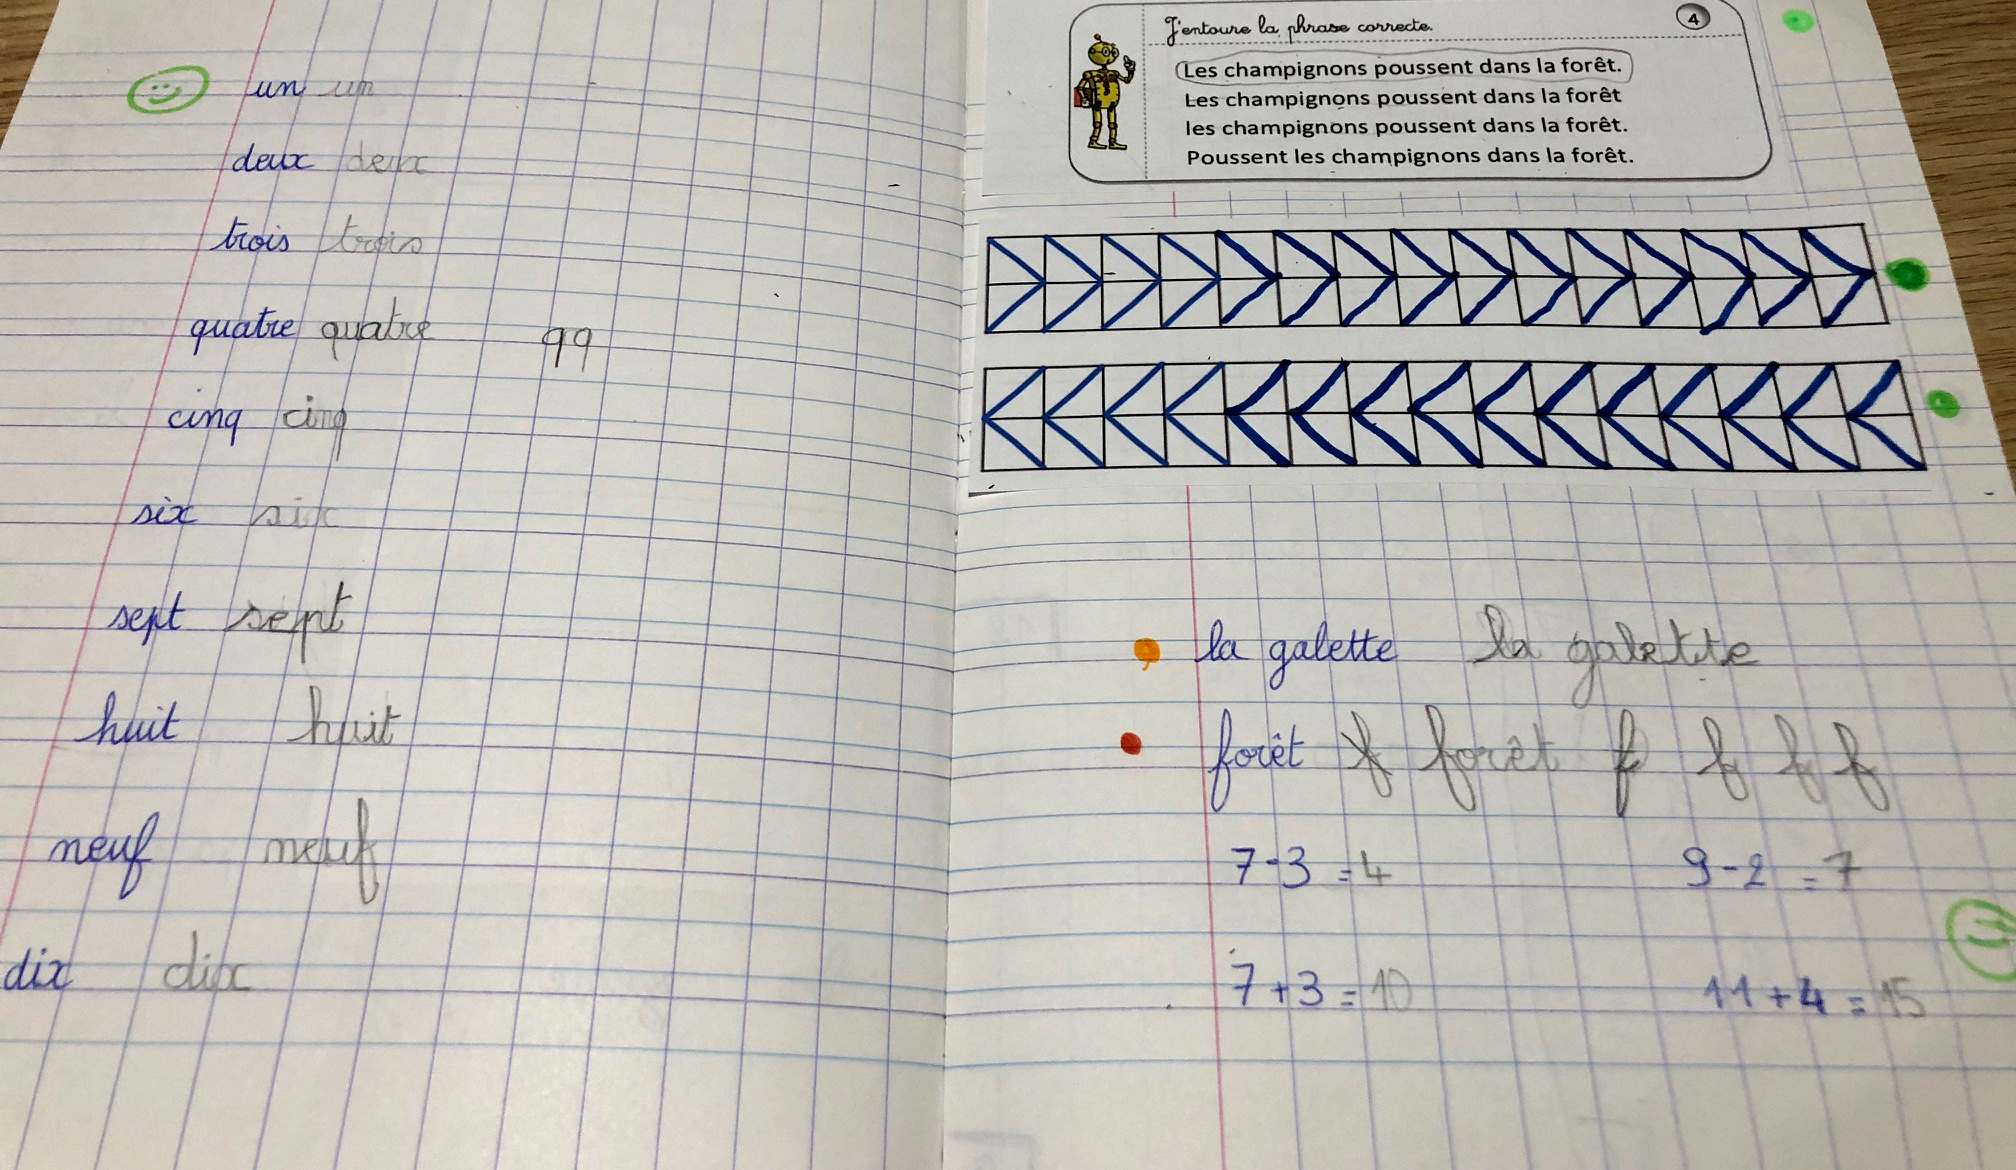 un un
deux deux
trois trois
quatre quatre qq
cinq cinq
six six
sept sept
huit huit
neuf neuf
dix dix
J'entoure la phrase correcte. 4
Les champignons poussent dans la forêt.
Les champignons poussent dans la forêt
les champignons poussent dans la forêt.
Poussent les champignons dans la forêt.
la galette la galette
forêt f forêt f f f f
7-3 = 4 9-2 = 7
7+3 = 10 11+4 = 15